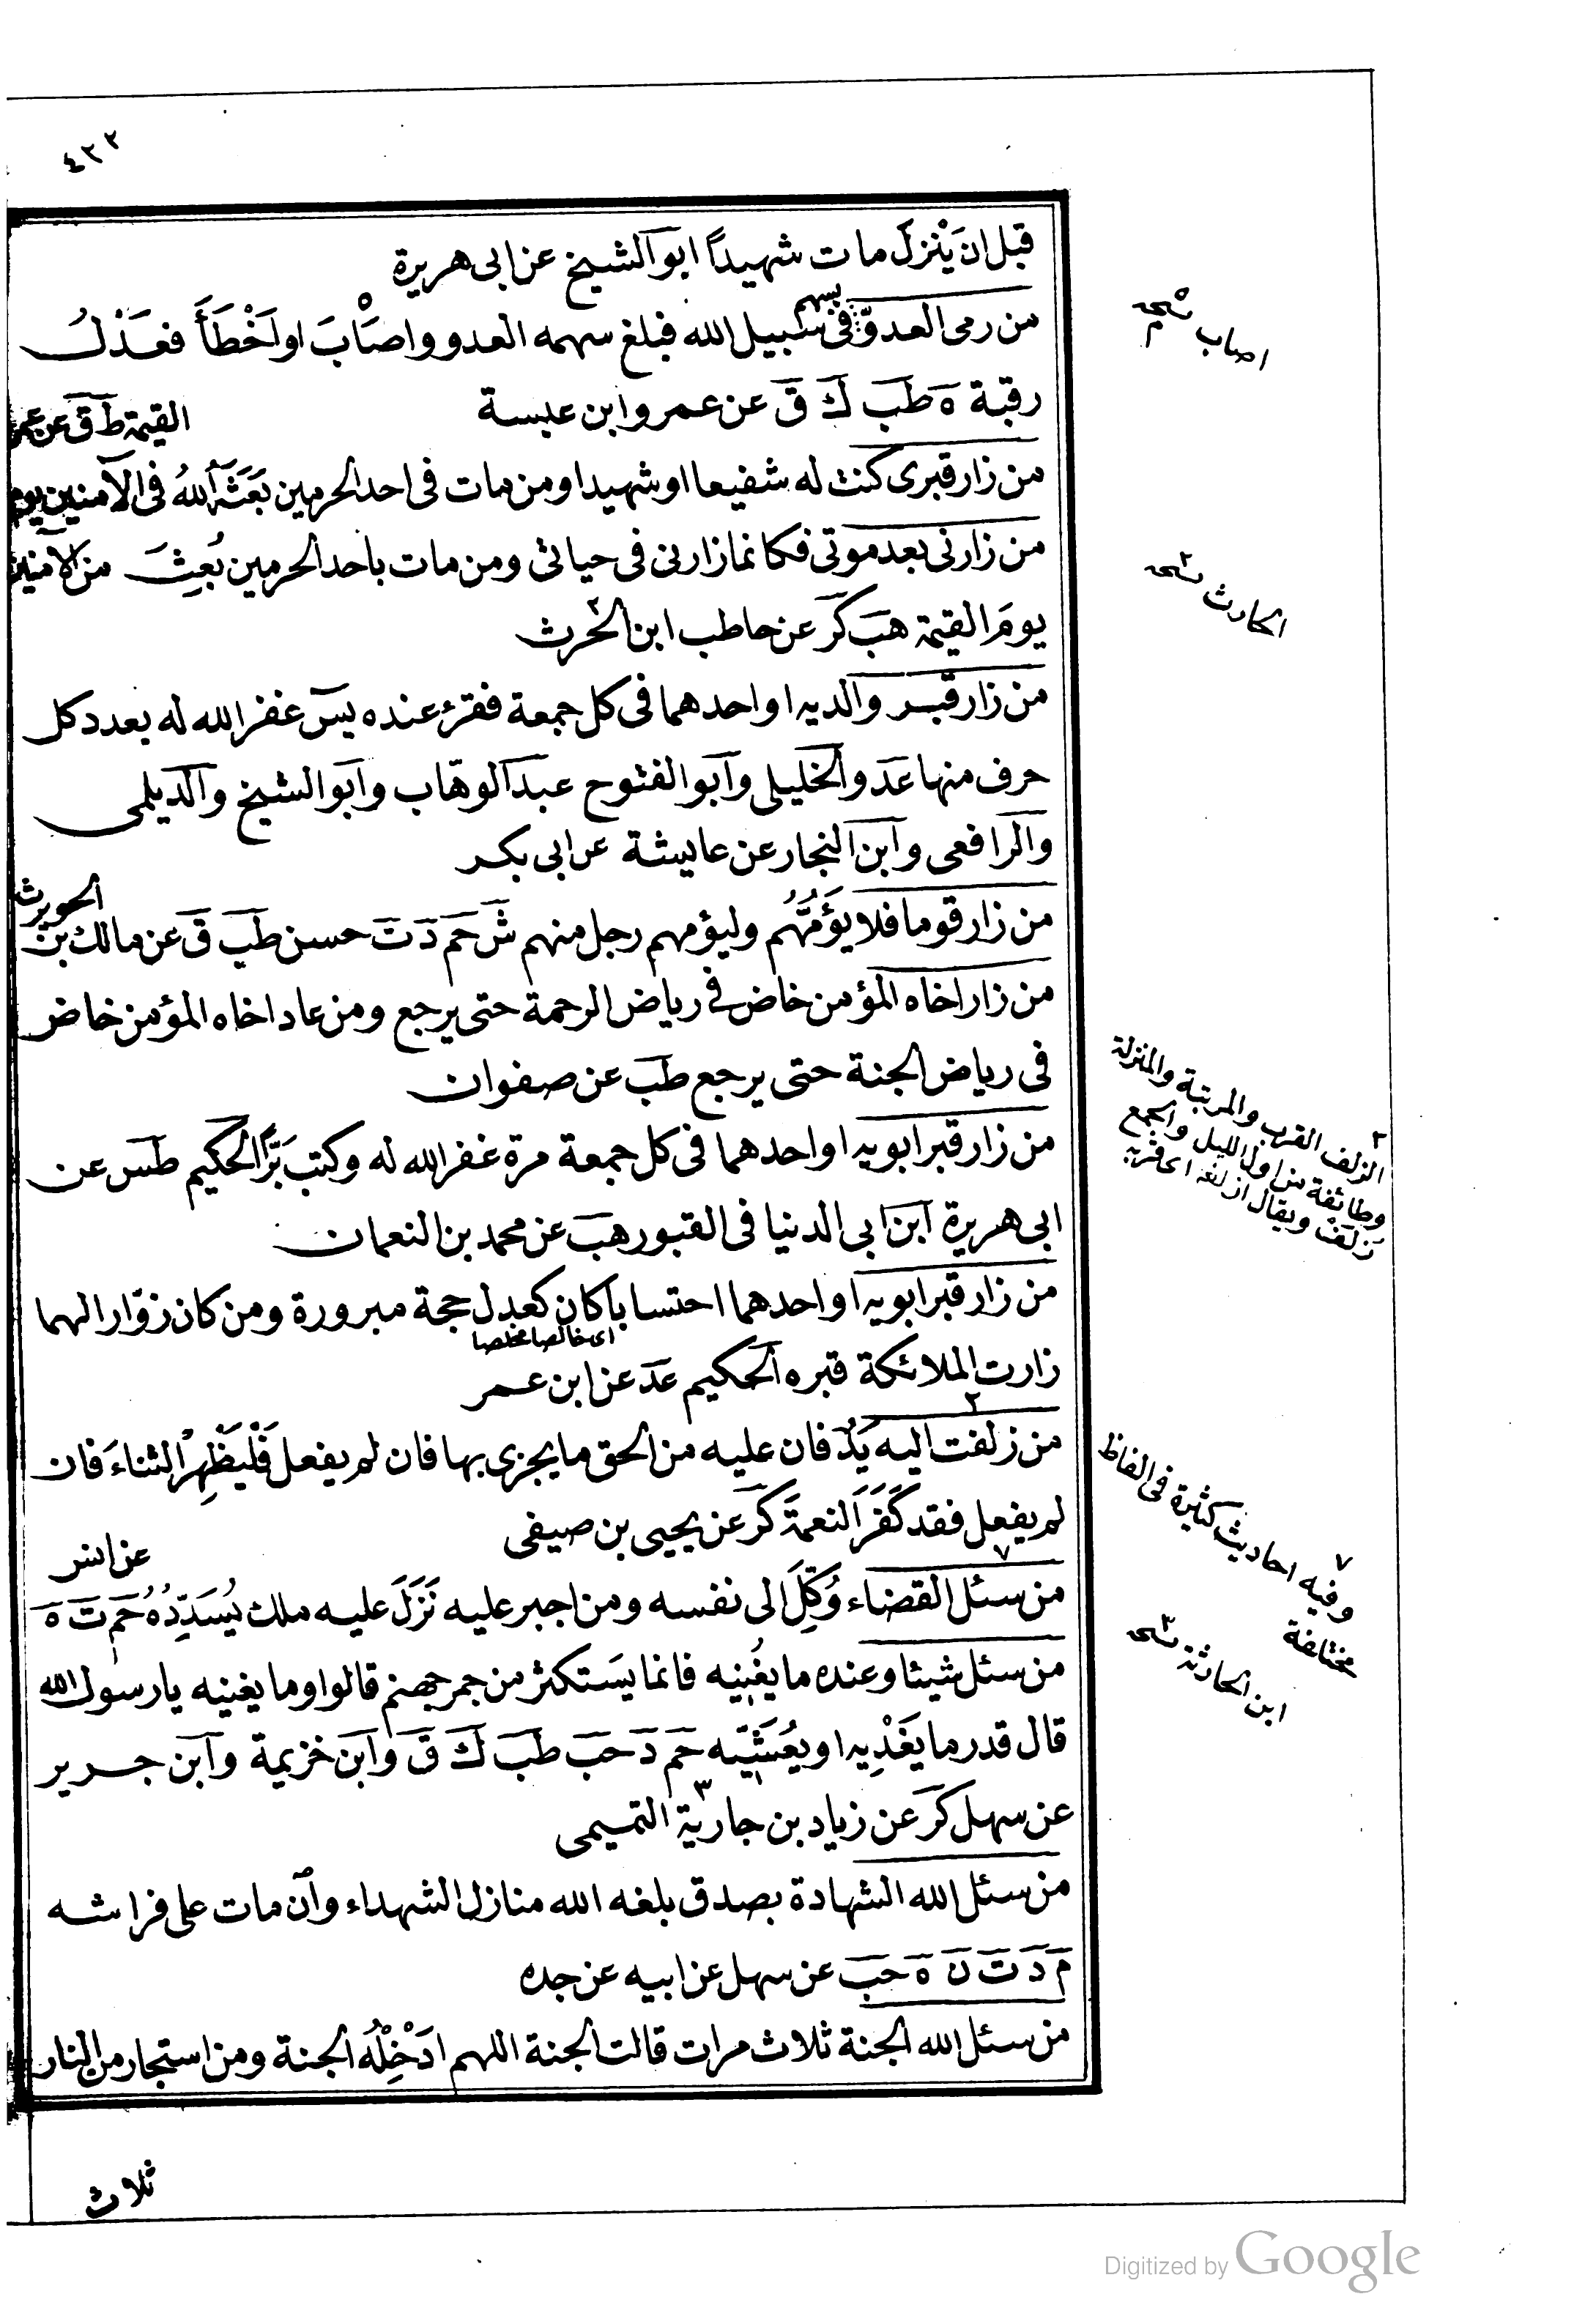 ٤٢٢
قبل ان يَنْزِلَ مات شهيداً ابو الشيخ عن ابى هريرة
من رمى العدوّ بسهم فى سبيل الله فبلغ سهمه العدو واصَابَ او اَخْطَأَ فعَدْلُ
رقبة ه طب ك ق عن عمرو ابن عبسة
القيمة ط ق عن عمر
من زار قبرى كنت له شفيعا او شهيدا ومن مات فى احد الحرمين بَعَثَهُ اللهُ فى الآمنين يوم
من زارنى بعد موتى فكانما زارنى فى حياتى ومن مات باحد الحرمين بُعِثَ من الآمنين
يومَ القيمة هب كر عن حاطب ابن الحرث
من زار قبر والديه او احدهما فى كل جمعة فقرئ عنده يس غفر الله له بعدد كل
حرف منها عد والخليلى وابو الفتوح عبد الوهّاب وابو الشيخ والديلمى
والرافعى وابن النجار عن عايشة عن ابى بكر
من زار قوما فلا يؤَمُّهُم وليؤمهم رجل منهم ش حم د ت حسن طب ق عن مالك بن
الحويرث
من زار اخاه المؤمن خاض فى رياض الرحمة حتى يرجع ومن عاد اخاه المؤمن خاض
فى رياض الجنة حتى يرجع طب عن صفوان
من زار قبر ابويه او احدهما فى كل جمعة مرة غفر الله له وكتب بَرًّا الحكيم طس عن
ابى هريرة ابن ابى الدنيا فى القبور هب عن محمد بن النعمان
من زار قبر ابويه او احدهما احتسابا كان كعدل حجة مبرورة ومن كان زوّارا لهما
اى خالصا مخلصا
زارت الملائكة قبره الحكيم عد عن ابن عمر
من زلفت اليه يَدٌ فان عليه من الحق ما يجزى بها فان لم يفعل فَلْيُظْهِرْ الثناءَ فان
لم يفعل فقد كَفَرَ النعمةَ كر عن يحيى بن صيفى
عن انس
من سئل القضاء وُكِّلَ الى نفسه ومن اجبر عليه نَزَلَ عليه ملك يُسَدِّدُهُ حم ت ه
من سئل شيئا وعنده ما يغنيه فانما يستكثر من جمر جهنم قالوا وما يغنيه يا رسول الله
قال قدر ما يغَدِّيه او يعُشّيه حم د حب طب ك ق وابن خزيمة وابن جرير
عن سهل كر عن زياد بن جارية التميمى
من سئل الله الشهادة بصدق بلغه الله منازل الشهداء وان مات على فراشه
م د ت ن ه حب عن سهل عن ابيه عن جده
من سئل الله الجنة ثلاث مرات قالت الجنة اللهم ادْخِلْهُ الجنة ومن استجار من النار
ثلاث
اصاب نسخه م
الحارث نسخه
٢ الزلف القرب والمرتبة والمنزلة
وطائفة من اول الليل والجمع
زلف ويقال ازلفه اى قربه
٧ وفيه احاديث كثيرة فى الفاظ
مختلفة
ابن الحارثة نسخه
Digitized by Google